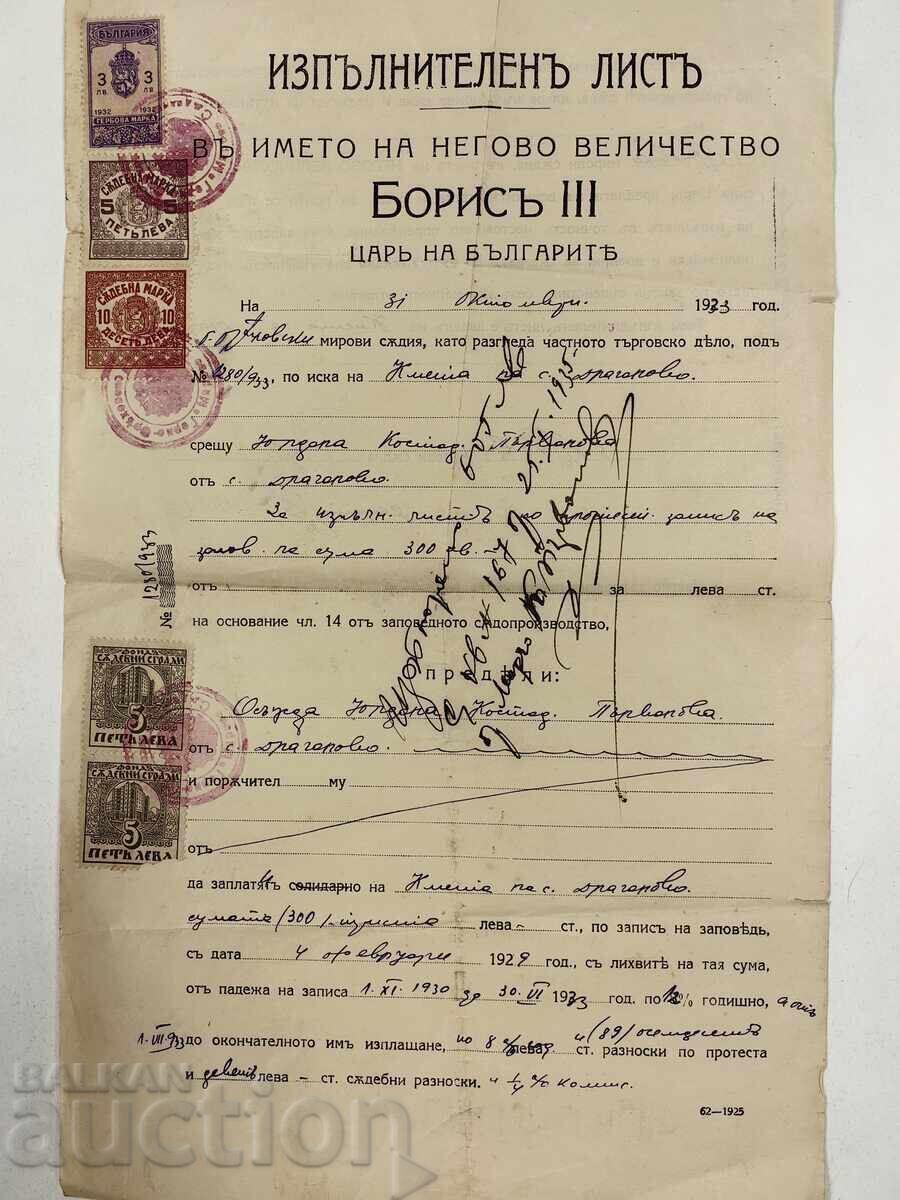 ИЗПЪЛНИТЕЛЕНЪ ЛИСТЪ
ВЪ ИМЕТО НА НЕГОВО ВЕЛИЧЕСТВО
БОРИСЪ III
ЦАРЬ НА БЪЛГАРИТѢ
БЪЛГАРИЯ
3 3
ЛВ ЛВ
1932 1932
ГЕРБОВА МАРКА
СѪДЕБНА МАРКА
5 5
ПЕТЬ ЛЕВА
СѪДЕБНА МАРКА
10 10
ДЕСЕТЬ ЛЕВА
На 31 Октомври 1933 год.
мирови сѫдия, като разгледа частното търговско дѣло, подъ
№ 1280/933, по иска на Кмета на с. Драганово.
срещу Юрдана Костад. Първанова
отъ с. Драганово.
За изпълн. листъ по записъ на
запов. за сума 300 лв.
отъ за лева ст.
на основание чл. 14 отъ заповедното сѫдопроизводство,
Опредѣли:
Осъжда Юрдана Костад. Първанова
отъ с. Драганово.
и порѫчител му
отъ
да заплатятъ солидарно на Кмета на с. Драганово
сумата /300/ триста лева ст., по запис на заповѣдь,
съ дата 4 Февруари 1929 год., съ лихвитѣ на тая сума,
отъ падежа на записа 1.XI.1930 до 30.VI 1933 год. по % годишно, а отъ
1.VII.933 до окончателното имъ изплащане, по 8 % лева и (89) осемдесетъ ст. разноски по протеста
и деветь лева – ст. сѫдебни разноски. и ¼ % комис.
62—1925
№ 1280/933
25. 1935
№ 167
ФОНДЪ
СѪДЕБНИ СГРАДИ
5
ПЕТЬ ЛЕВА
ФОНДЪ
СѪДЕБНИ СГРАДИ
5
ПЕТЬ ЛЕВА
BALKAN
auction